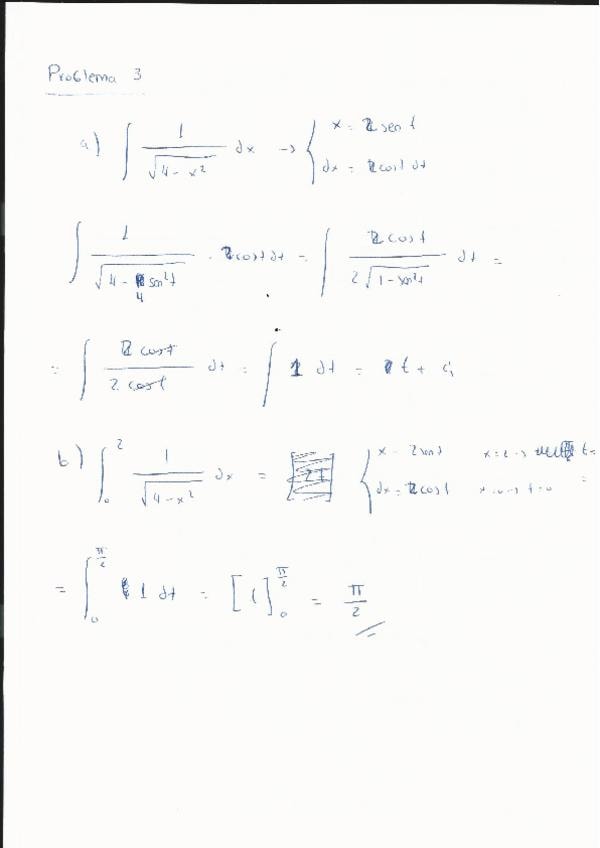 Problema 3
a) ∫ 1/√(4-x²) dx → { x = 2 sen t
dx = 2 cos t dt
∫ 1/√(4 - 4 sen²t) · 2 cos t dt = ∫ 2 cos t / 2√(1 - sen²t) dt =
= ∫ 2 cos t / 2 cos t dt = ∫ 1 dt = t + C,
b) ∫₀² 1/√(4-x²) dx = { x = 2 sen t x=2 → t=
dx = 2 cos t x=0 → t=0 =
= ∫₀^(π/2) 1 dt = [t]₀^(π/2) = π/2